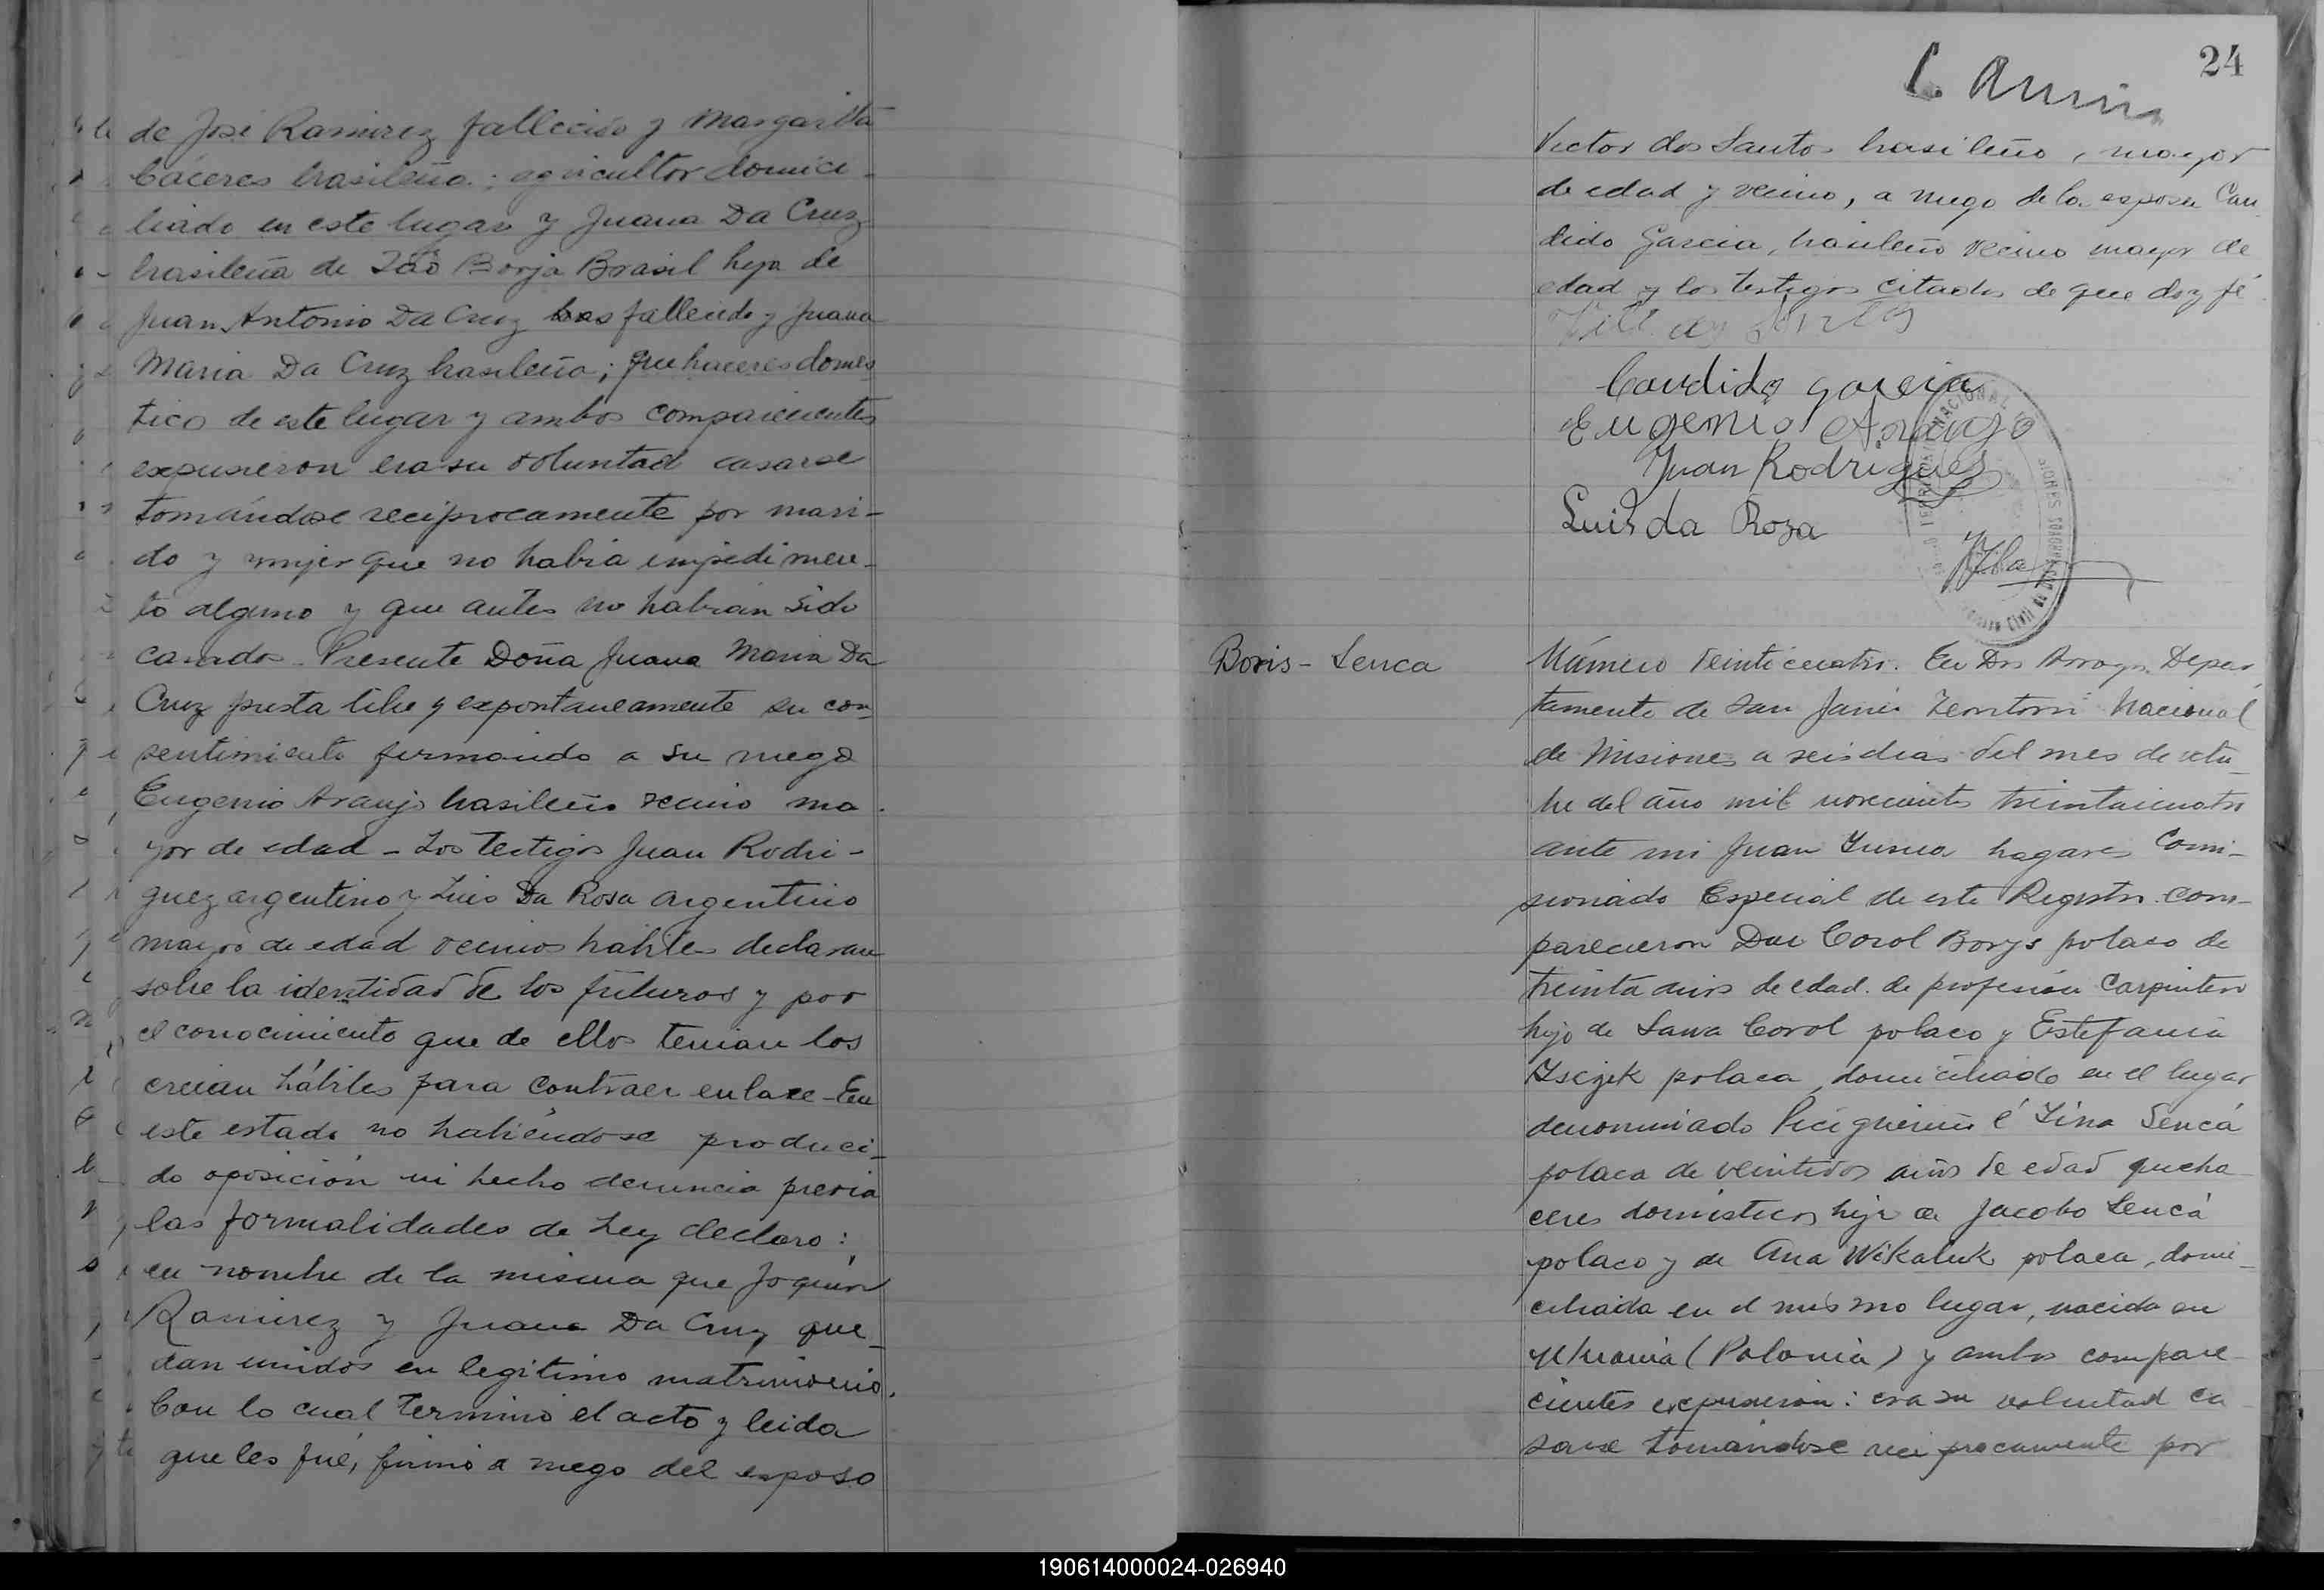 de José Ramirez fallecido y Margarita
Cáceres brasileña; agricultor domici-
liado en este lugar y Juana Da Cruz
brasileña de São Borja Brasil hija de
Juan Antonio Da Cruz fallecido y Juana
Maria Da Cruz brasileña; quehaceres domes
tico de este lugar y ambos comparecientes
expusieron era su voluntad casarse
tomándose reciprocamente por mari-
do y mujer que no habia impedimen-
to alguno y que antes no habian sido
casados. Presente Doña Juana Maria Da
Cruz presta libre y expontaneamente su con
sentimiento firmando a su ruego
Eugenio Araujo brasileño vecino ma
yor de edad - Los testigos Juan Rodri-
guez argentino y Luis Da Rosa argentino
mayor de edad vecinos habiles declaran
sobre la identidad de los futuros y por
el conocimiento que de ellos tenian los
creian hábiles para contraer enlace - En
este estado no habiéndose produci-
do oposición ni hecho denuncia previa
las formalidades de Ley declaro:
en nombre de la misma que Joquin
Ramirez y Juana Da Cruz que
dan unidos en legitimo matrimonio.
Con lo cual termino el acto y leida
que les fué, firmó a ruego del esposo
24
Victor dos Santos brasileño, mayor
de edad y vecino, a ruego de la esposa Can
dido Garcia, brasileño vecino mayor de
edad y los testigos citados de que doy fé
Candido garcia
Eugenio Araujo
Juan Rodriguez
Luis da Roza
Boris - Senca
Número veinticuatro. En Dos Arroyos Depar
tamento de San Javier Territorio Nacional
de Misiones a seis dias del mes de octu-
bre del año mil novecientos treintaicuatro
ante mi Juan hagares Comi-
sionado Especial de este Registro com-
parecieron Don Corol Borys polaco de
treinta años de edad. de profesión Carpintero
hijo de Sawa Corol polaco y Estefania
polaca, domiciliado en el lugar
denominado é Sencá
polaca de veintidos años de edad queha
ceres domésticos hija de Jacobo Sencá
polaco y de Ana Wikaluk polaca, domi-
ciliada en el mismo lugar, nacida en
Ukrania (Polonia) y ambos compare
cientes expusieron: era su voluntad ca
sarse tomándose reciprocamente por
190614000024-026940